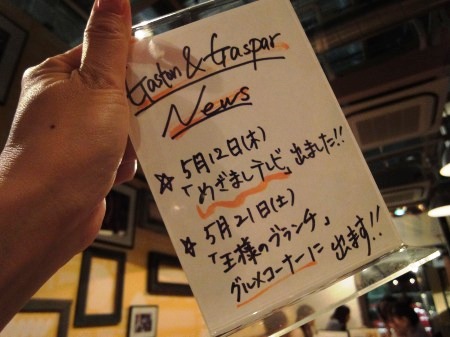 Gaston & Gaspar
News
☆ 5月12日(木)
「めざましテレビ」出ました!!
☆ 5月21日(土)
「王様のブランチ」
グルメコーナーに出ます!!